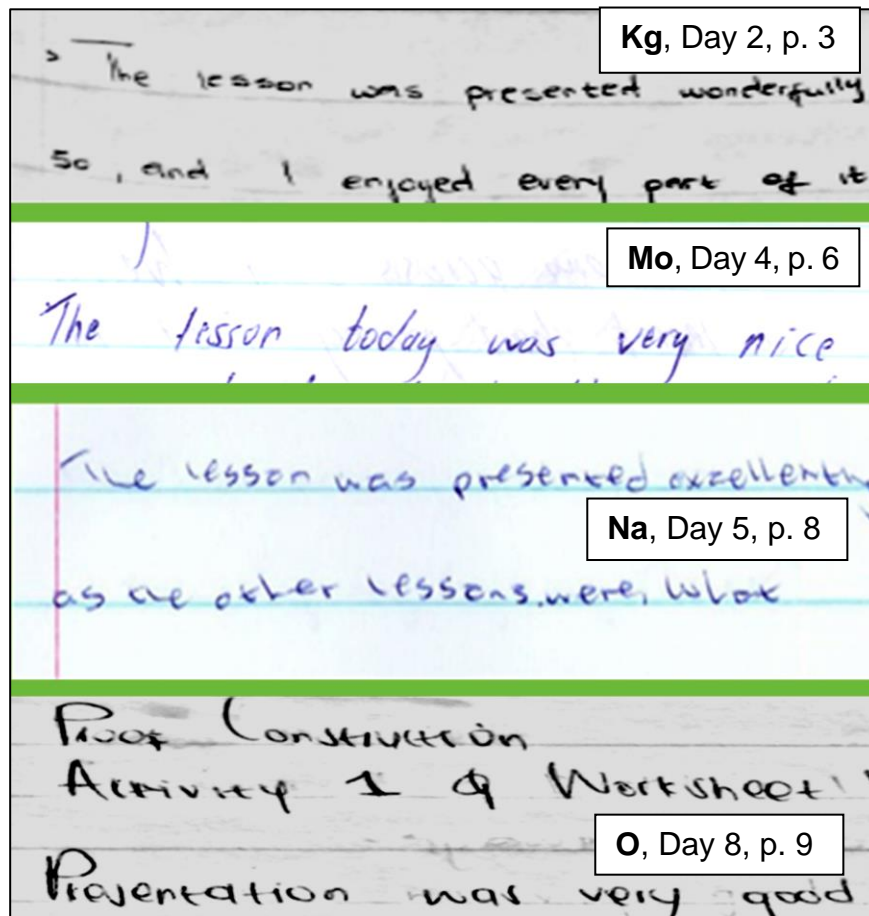 Kg, Day 2, p. 3
> The lesson was presented wonderfully
So, and I enjoyed every part of it
Mo, Day 4, p. 6
The lesson today was very nice
The lesson was presented exzellently
Na, Day 5, p. 8
as the other lessons were, What
Proof Construction
Activity 1 & Worksheet
O, Day 8, p. 9
Presentation was very good